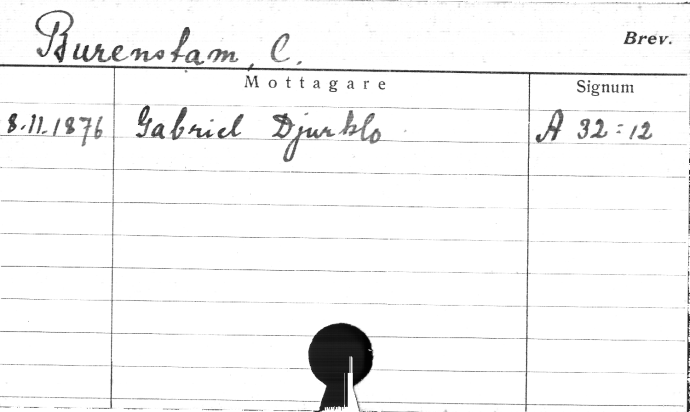 Burenstam, C. Brev.
Mottagare Signum
8.11.1876 Gabriel Djurklo A 32:12